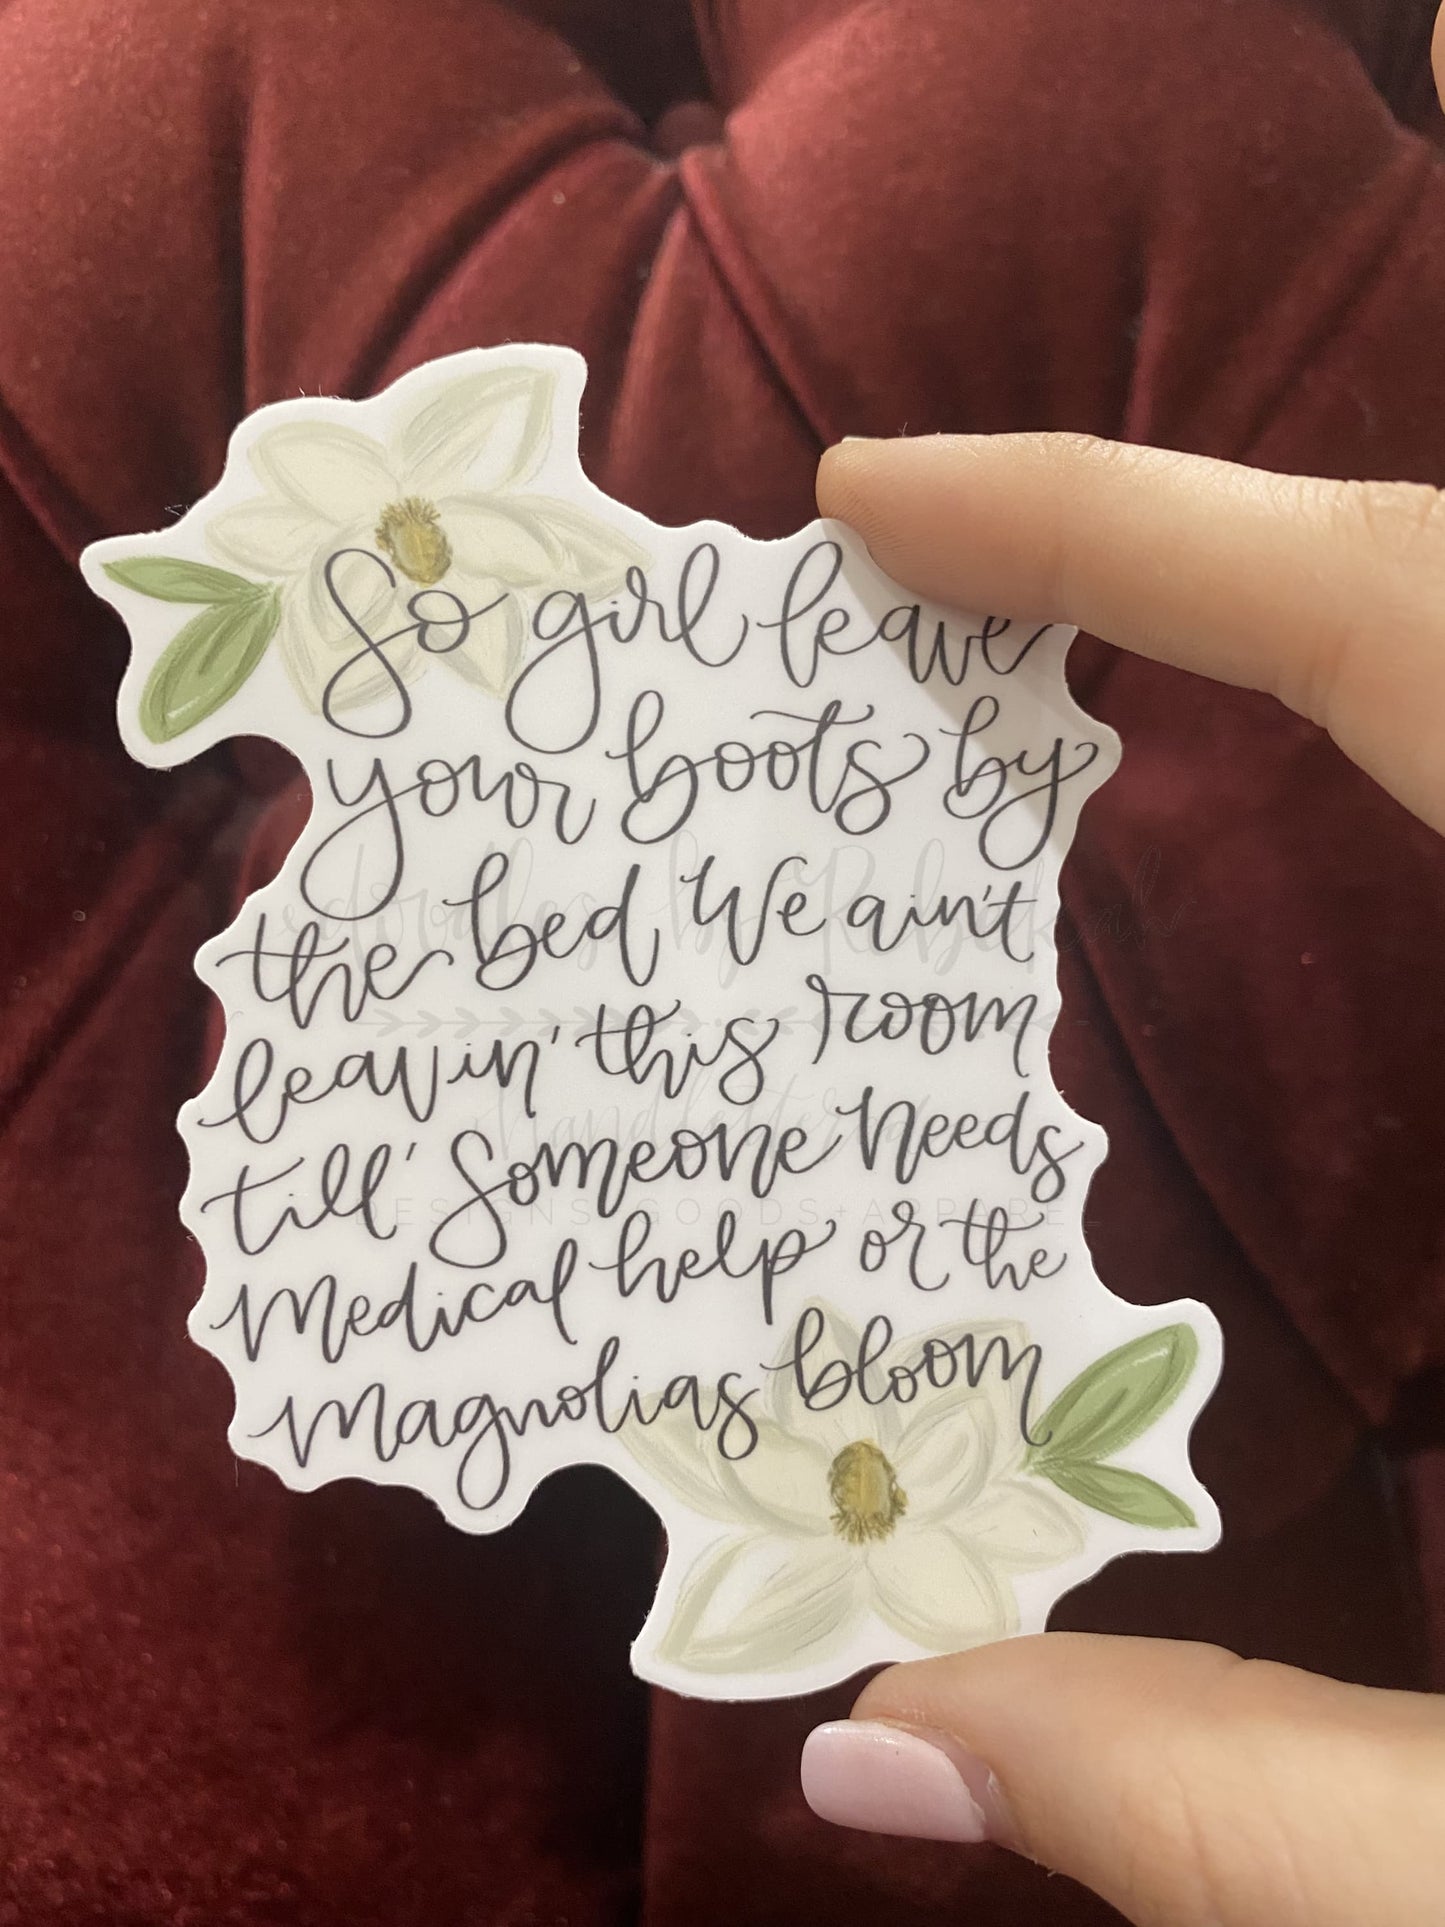 So girl leave
your boots by
the bed We ain't
leavin' this room
till' Someone needs
Medical help or the
magnolias bloom
doodles by Rebekah
handlettered
DESIGNS GOODS+APPAREL